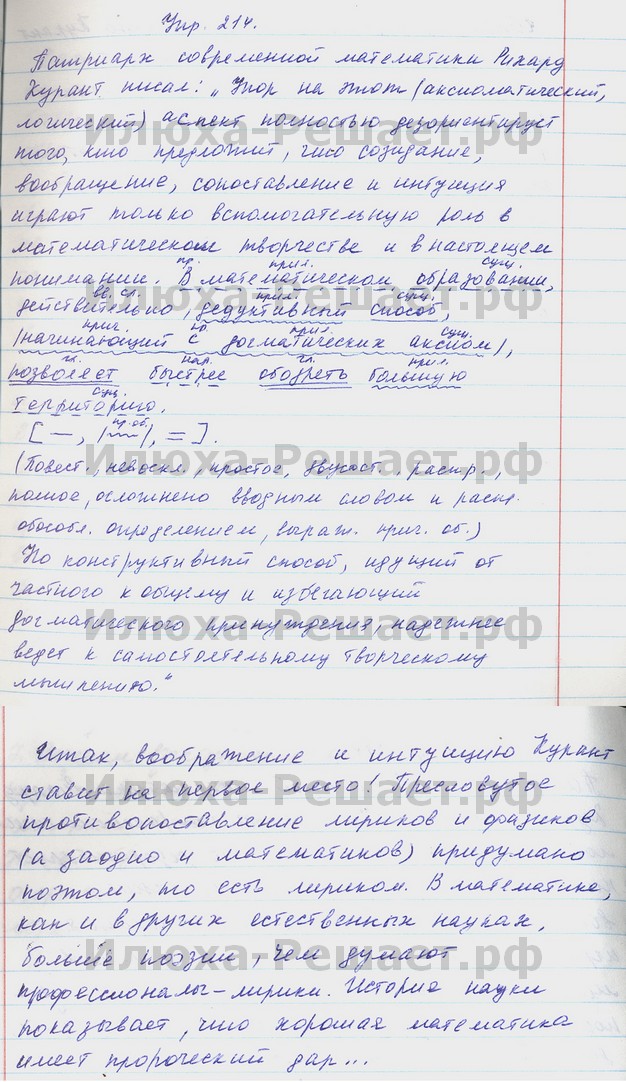 Упр. 214.
Патриарх современной математики Рихард
Курант писал: „Упор на этот (аксиоматический,
логический) аспект полностью дезориентирует
того, кто предложит, что созидание,
вообращение, сопоставление и интуиция
играют только вспомогательную роль в
математическом творчестве и в настоящем
понимании. В математическом образовании,
пр. прил. сущ.
действительно, дедуктивный способ,
вв. сл. прил. сущ.
/начинающий с догматических аксиом/,
прич. пр. прил. сущ.
позволяет быстрее обозреть большую
гл. нар. гл. прил.
территорию.
сущ.
[—, /~~~/, =].
пр. об.
(Повест., невоскл., простое, двусост., распр.,
полное, осложнено вводным словом и распр.
обособл. определением, выраж. прич. об.)
Но конструктивный способ, идущий от
частного к общему и избегающий
догматического принуждения, надежнее
ведет к самостоятельному творческому
мышлению."
Итак, воображение и интуицию Курант
ставит на первое место! Пресловутое
противопоставление лириков и физиков
(а заодно и математиков) придумано
поэтом, то есть лириком. В математике,
как и в других естественных науках,
больше поэзии, чем думают
профессионалы-лирики. История науки
показывает, что хорошая математика
имеет пророческий дар...
Илюха-Решает.рф
Илюха-Решает.рф
Илюха-Решает.рф
Илюха-Решает.рф
Илюха-Решает.рф
Илюха-Решает.рф